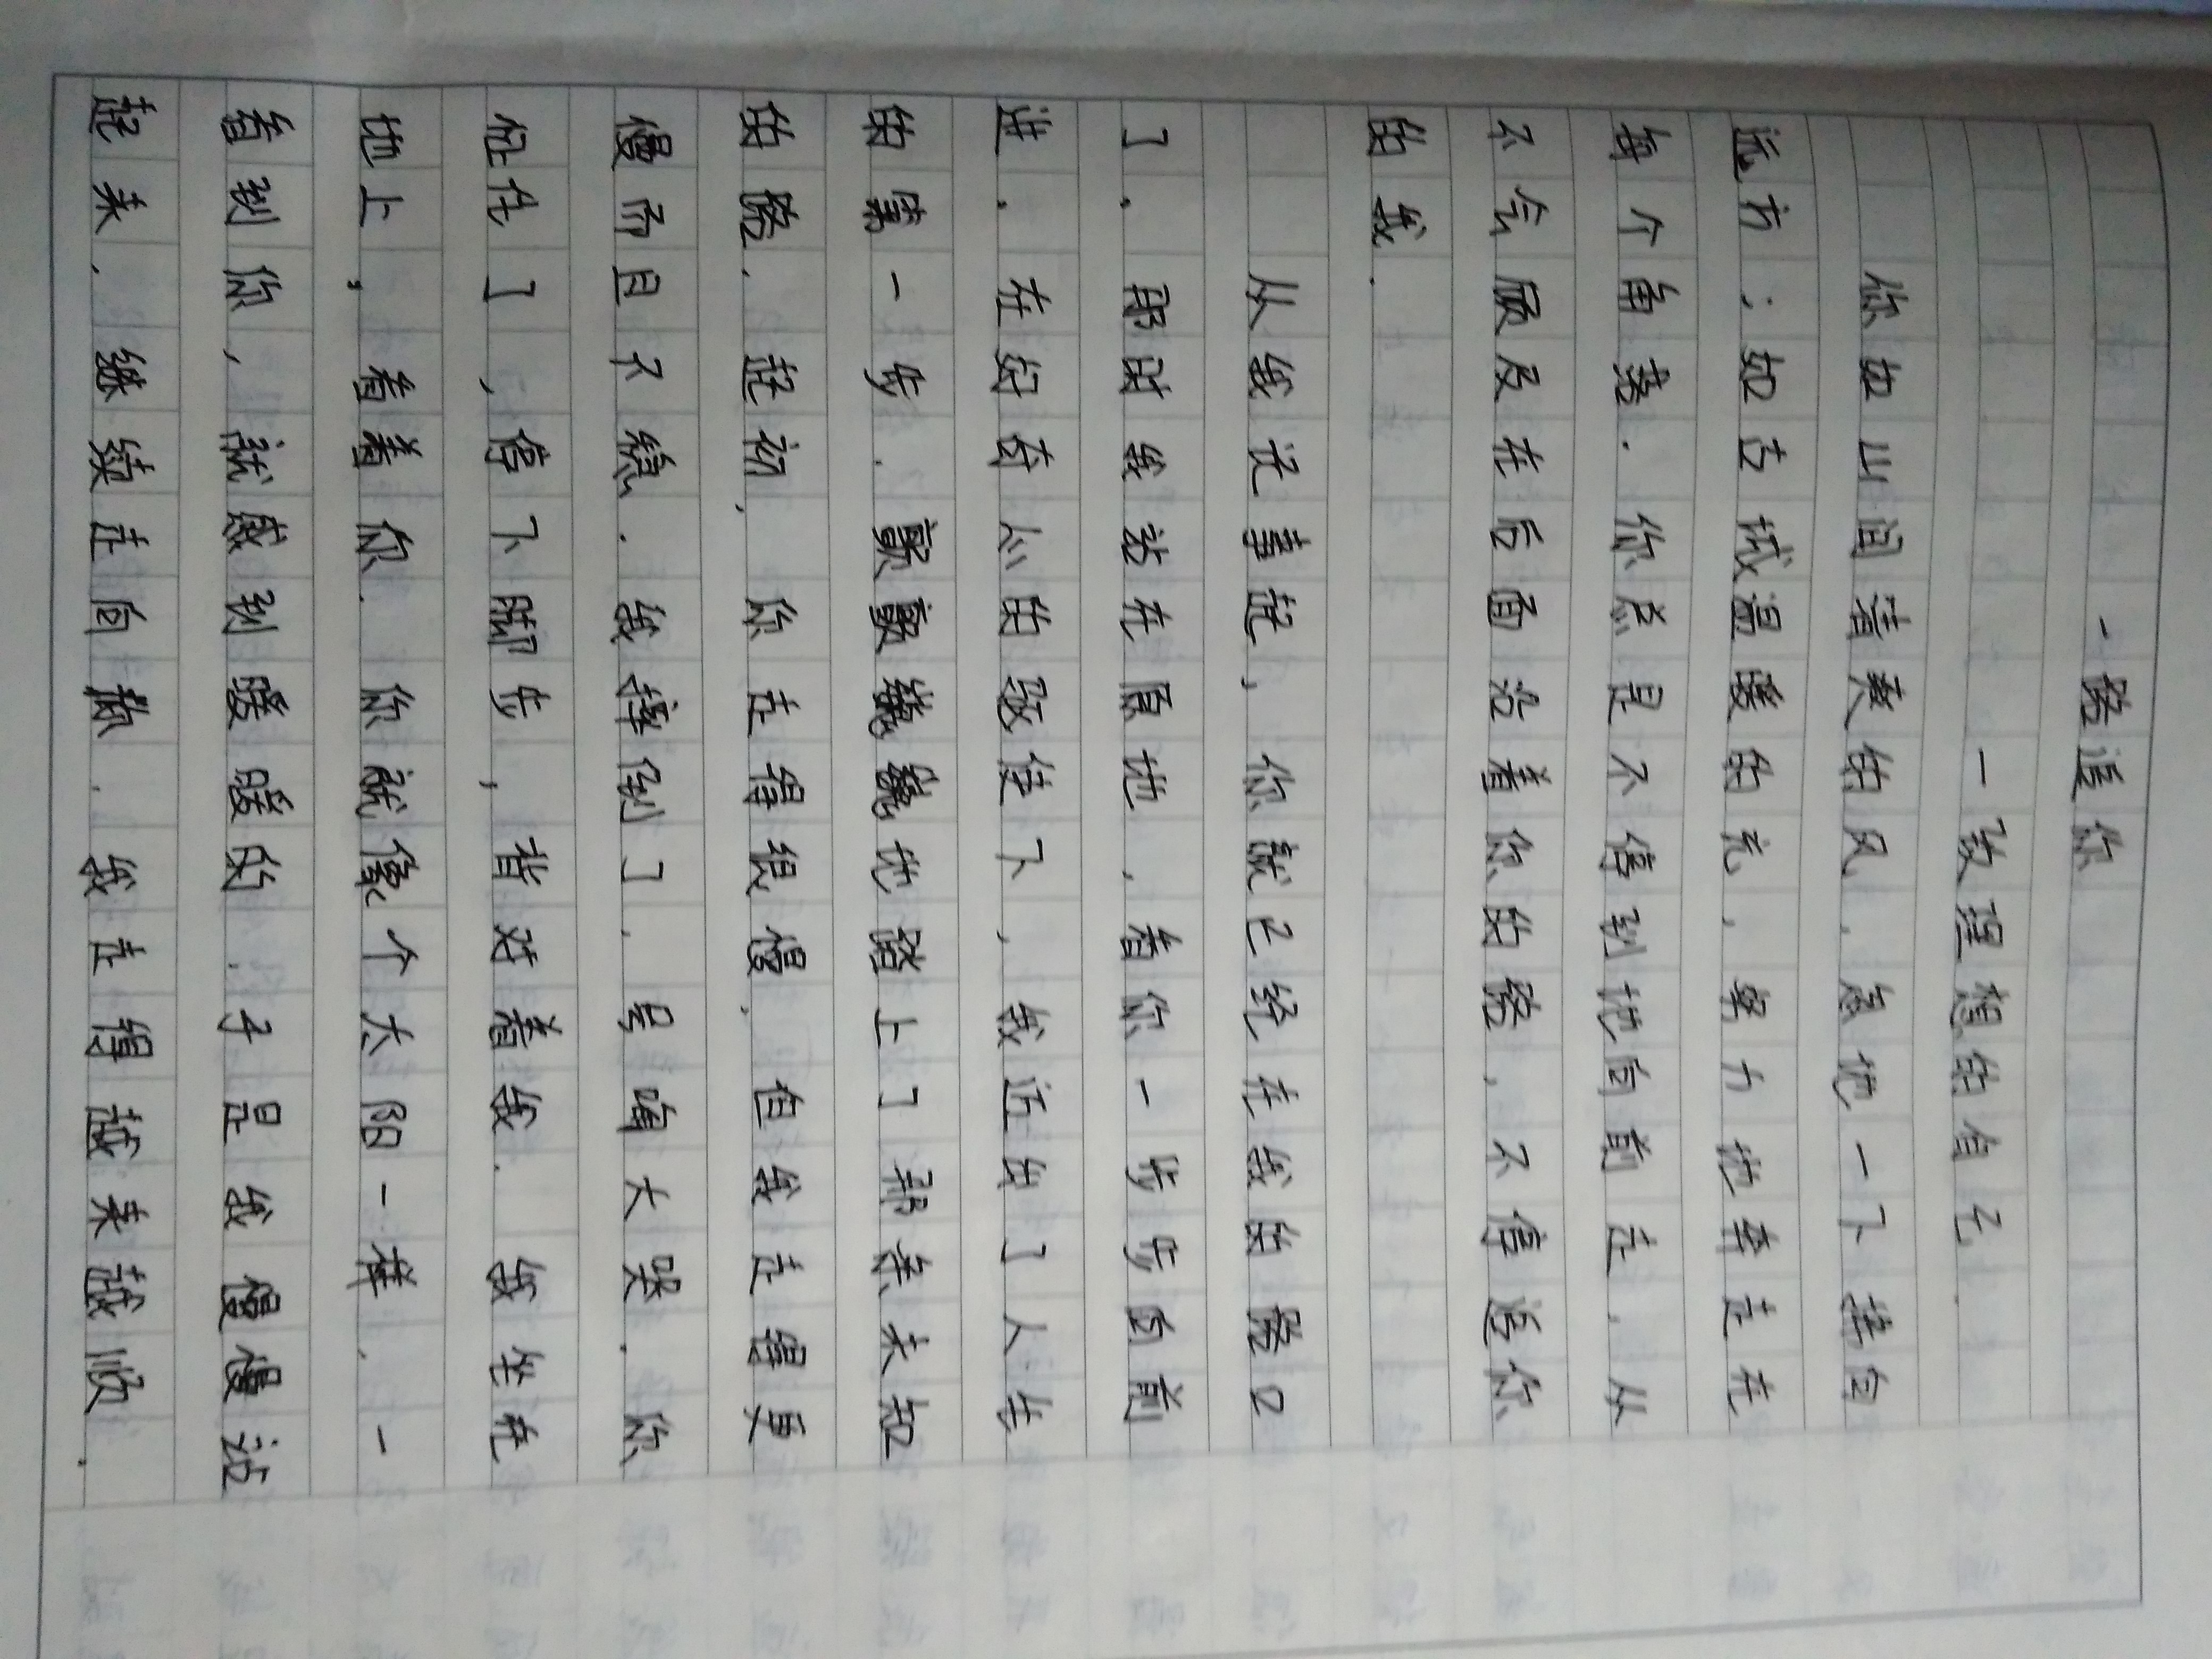 一路追你
一致理想的自己.
你如山间清爽的风,急地一下接向
远方;如古城温暖的光,努力地奔走在
每个角落.你总是不停到地向前走,从
不会顾及在后面沿着你的路,不停追你
的我.
从我记事起,你就已经在我的路口
了.那时我站在原地,看你一步步向前
进.在好奇心的驱使下,我迈出了人生
的第一步.颤颤巍巍地踏上了那条未知
的路.起初,你走得很慢,但我走得更
慢而且不稳.我摔倒了,号啕大哭.你
怔住了,停下脚步,背对着我.我坐在
地上,看着你.你就像个太阳一样,一
看到你,就感到暖暖的.于是我慢慢站
起来.继续走向前.我走得越来越顺.